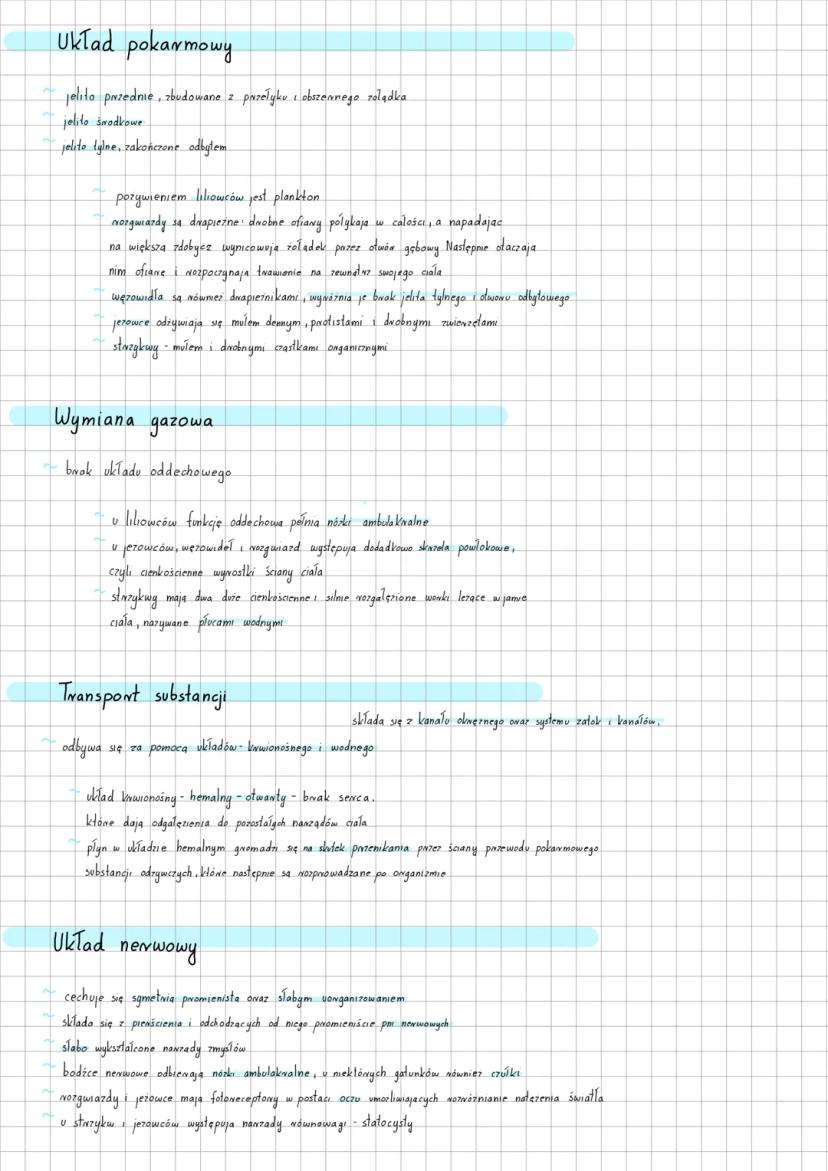 Układ pokarmowy
~ jelito przednie, zbudowane z przełyku i obszernego żołądka
~ jelito środkowe
~ jelito tylne, zakończone odbytem
~ pożywieniem liliowców jest plankton
~ rozgwiazdy są drapieżne: drobne ofiary połykają w całości, a napadając
na większą zdobycz wynicowują żołądek przez otwór gębowy Następnie otaczają
nim ofiarę i rozpoczynają trawienie na zewnątrz swojego ciała
~ wężowidła są również drapieżnikami, wyróżnia je brak jelita tylnego i otworu odbytowego
~ jeżowce odżywiają się mułem dennym, protistami i drobnymi zwierzętami
~ strzykwy - mułem i drobnymi cząstkami organicznymi
Wymiana gazowa
~ brak układu oddechowego
~ u liliowców funkcję oddechową pełnią nóżki ambulakralne
~ u jeżowców, wężowideł i rozgwiazd występują dodatkowo skrzela powłokowe,
czyli cienkościenne wyrostki ściany ciała
~ strzykwy mają dwa duże cienkościenne i silnie rozgałęzione worki leżące w jamie
ciała, nazywane płucami wodnymi
Transport substancji
składa się z kanału okrężnego oraz systemu zatok i kanałów,
~ odbywa się za pomocą układów - krwionośnego i wodnego
~ układ krwionośny - hemalny - otwarty - brak serca.
które dają odgałęzienia do pozostałych narządów ciała
~ płyn w układzie hemalnym gromadzi się na skutek przenikania przez ściany przewodu pokarmowego
substancji odżywczych, które następnie są rozprowadzane po organizmie
Układ nerwowy
~ cechuje się symetrią promienistą oraz słabym uorganizowaniem
~ składa się z pierścienia i odchodzących od niego promieniście pni nerwowych
~ słabo wykształcone narządy zmysłów
~ bodźce nerwowe odbierają nóżki ambulakralne, u niektórych gatunków również czułki
~ rozgwiazdy i jeżowce mają fotoreceptory w postaci oczu umożliwiających rozróżnianie natężenia światła
~ u strzykw i jeżowców występują narządy równowagi - statocysty